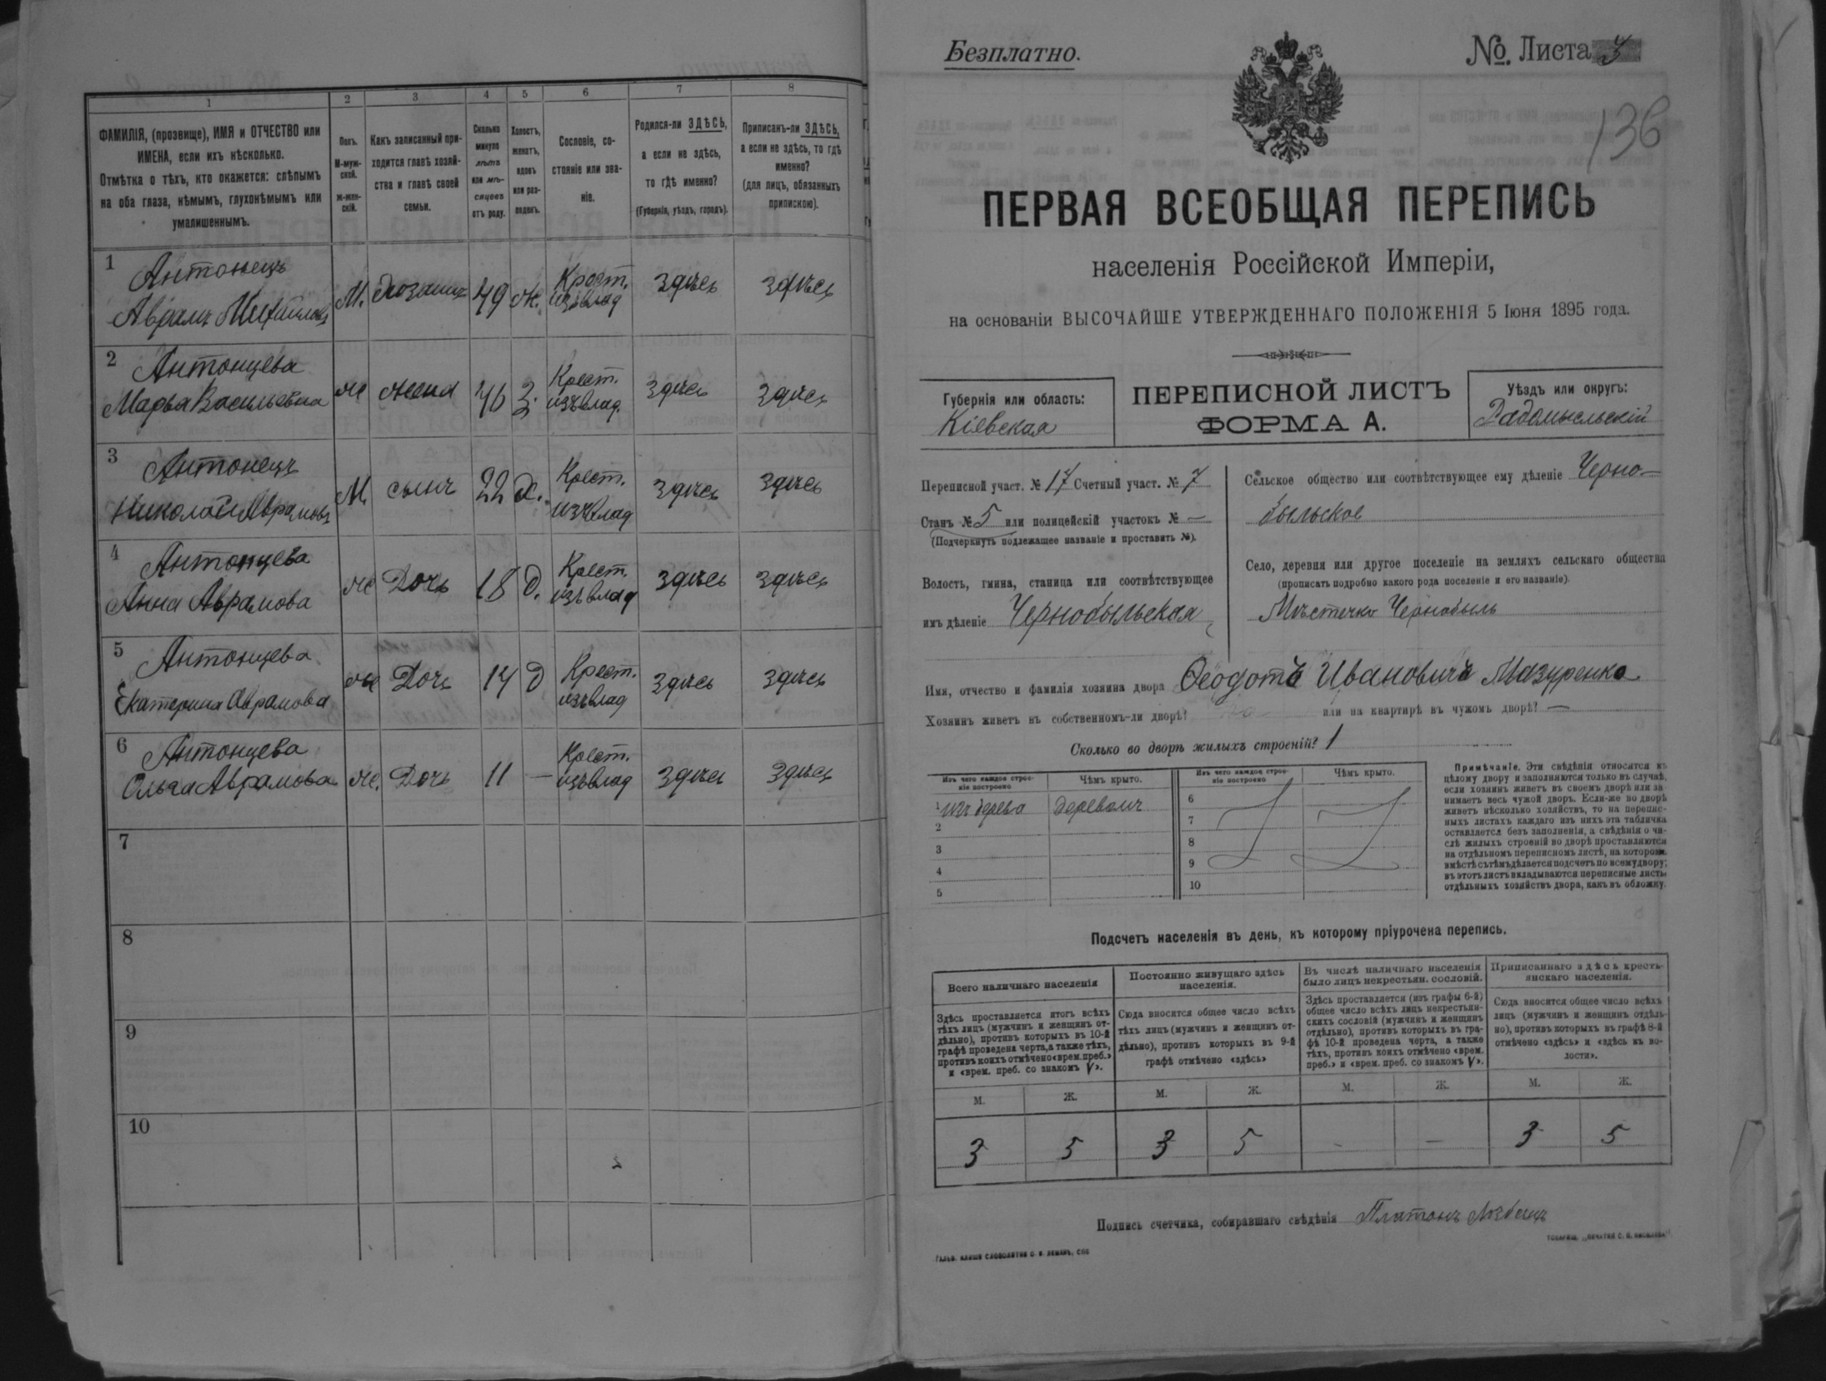 1
2
3
4
5
6
7
8
ФАМИЛІЯ, (прозвище), ИМЯ и ОТЧЕСТВО или
ИМЕНА, если ихъ нѣсколько.
Отмѣтка о тѣхъ, кто окажется: слѣпымъ
на оба глаза, нѣмымъ, глухонѣмымъ или
умалишеннымъ.
Полъ.
М-муж-
ской.
ж-жен-
скій.
Какъ записанный при-
ходится главѣ хозяй-
ства и главѣ своей
семьи.
Сколько
минуло
лѣтъ
или мѣ-
сяцевъ
отъ роду.
Холостъ,
женатъ,
вдовъ
или раз-
веденъ.
Сословіе, со-
стояніе или зва-
ніе.
Родился-ли ЗДѢСЬ,
а если не здѣсь,
то гдѣ именно?
(Губернія, уѣздъ, городъ).
Приписанъ-ли ЗДѢСЬ,
а если не здѣсь, то гдѣ
именно?
(для лицъ, обязанныхъ
припискою).
1 Антонецъ
Аврамъ М. хозяинъ 49 ж. Крест. изъ влад здѣсь здѣсь
2 Антонцева
Марья Васильевна ж жена 46 З. Крест. изъ влад. здѣсь здѣсь
3 Антонецъ
Николай Аврамовъ М. сынъ 22 Х. Крест. изъ влад здѣсь здѣсь
4 Антонцева
Анна Аврамова ж Дочь 18 Д. Крест. изъ влад здѣсь здѣсь
5 Антонцева
Екатерина Аврамова ж Дочь 14 Д Крест. изъ влад здѣсь здѣсь
6 Антонцева
Ольга Аврамова ж. Дочь 11 — Крест. изъ влад здѣсь здѣсь
7
8
9
10
Безплатно.
№. Листа 3
136
ПЕРВАЯ ВСЕОБЩАЯ ПЕРЕПИСЬ
населенія Россійской Имперіи,
на основаніи ВЫСОЧАЙШЕ УТВЕРЖДЕННАГО ПОЛОЖЕНІЯ 5 Іюня 1895 года.
Губернія или область:
Кіевская
ПЕРЕПИСНОЙ ЛИСТЪ
ФОРМА А.
Уѣздъ или округъ:
Радомысльскій
Переписной участ. № 17 Счетный участ. № 7
Станъ № 5 или полицейскій участокъ № —
(Подчеркнуть подлежащее названіе и проставить №).
Волость, гмина, станица или соотвѣтствующее
имъ дѣленіе Чернобыльская
Сельское общество или соотвѣтствующее ему дѣленіе Черно-
быльское
Село, деревня или другое поселеніе на земляхъ сельскаго общества
(прописать подробно какого рода поселеніе и его названіе)
Мѣстечко Чернобыль
Имя, отчество и фамилія хозяина двора Ѳеодотъ Ивановичъ Мазуренко
Хозяинъ живетъ въ собственномъ-ли дворѣ? да или на квартирѣ въ чужомъ дворѣ? —
Сколько во дворѣ жилыхъ строеній? 1
Изъ чего каждое строе-
ніе построено
Чѣмъ крыто.
Изъ чего каждое строе-
ніе построено
Чѣмъ крыто.
1 изъ дерева деревомъ
2
3
4
5
6
7
8
9
10
Примѣчаніе. Эти свѣдѣнія относятся къ
цѣлому двору и заполняются только въ случаѣ,
если хозяинъ живетъ въ своемъ дворѣ или за-
нимаетъ весь чужой дворъ. Если-же во дворѣ
живетъ нѣсколько хозяйствъ, то на перепис-
ныхъ листахъ каждаго изъ нихъ эта табличка
оставляется безъ заполненія, а свѣдѣнія о чи-
слѣ жилыхъ строеній во дворѣ проставляются
на отдѣльномъ переписномъ листѣ, на которомъ
вмѣстѣ съ тѣмъ дѣлается подсчетъ по всему двору;
въ этотъ листъ вкладываются переписные листы
отдѣльныхъ хозяйствъ двора, какъ въ обложку.
Подсчетъ населенія въ день, къ которому пріурочена перепись.
Всего наличнаго населенія
Постоянно живущаго здѣсь
населенія.
Въ числѣ наличнаго населенія
было лицъ некрестьян. сословій.
Приписаннаго здѣсь кресть-
янскаго населенія.
Здѣсь проставляется итогъ всѣхъ
тѣхъ лицъ (мужчинъ и женщинъ от-
дѣльно), противъ которыхъ въ 10-й
графѣ проведена черта, а также тѣхъ,
противъ коихъ отмѣчено «врем. преб.»
и «врем. преб. со знакомъ V».
Сюда вносится общее число всѣхъ
тѣхъ лицъ (мужчинъ и женщинъ от-
дѣльно), противъ которыхъ въ 9-й
графѣ отмѣчено «здѣсь»
Здѣсь проставляется (изъ графы 6-й)
общее число всѣхъ лицъ некрестьян-
скихъ сословій (мужчинъ и женщинъ
отдѣльно), противъ которыхъ въ гра-
фѣ 10-й проведена черта, а также
тѣхъ, противъ коихъ отмѣчено «врем.
преб.» и «врем. преб. со знакомъ V».
Сюда вносится общее число всѣхъ
лицъ (мужчинъ и женщинъ отдѣль-
но), противъ которыхъ въ графѣ 8-й
отмѣчено «здѣсь» и «здѣсь въ во-
лости».
М. Ж. М. Ж. М. Ж. М. Ж.
3 5 3 5 - — 3 5
Подпись счетчика, собиравшаго свѣдѣнія Платонъ